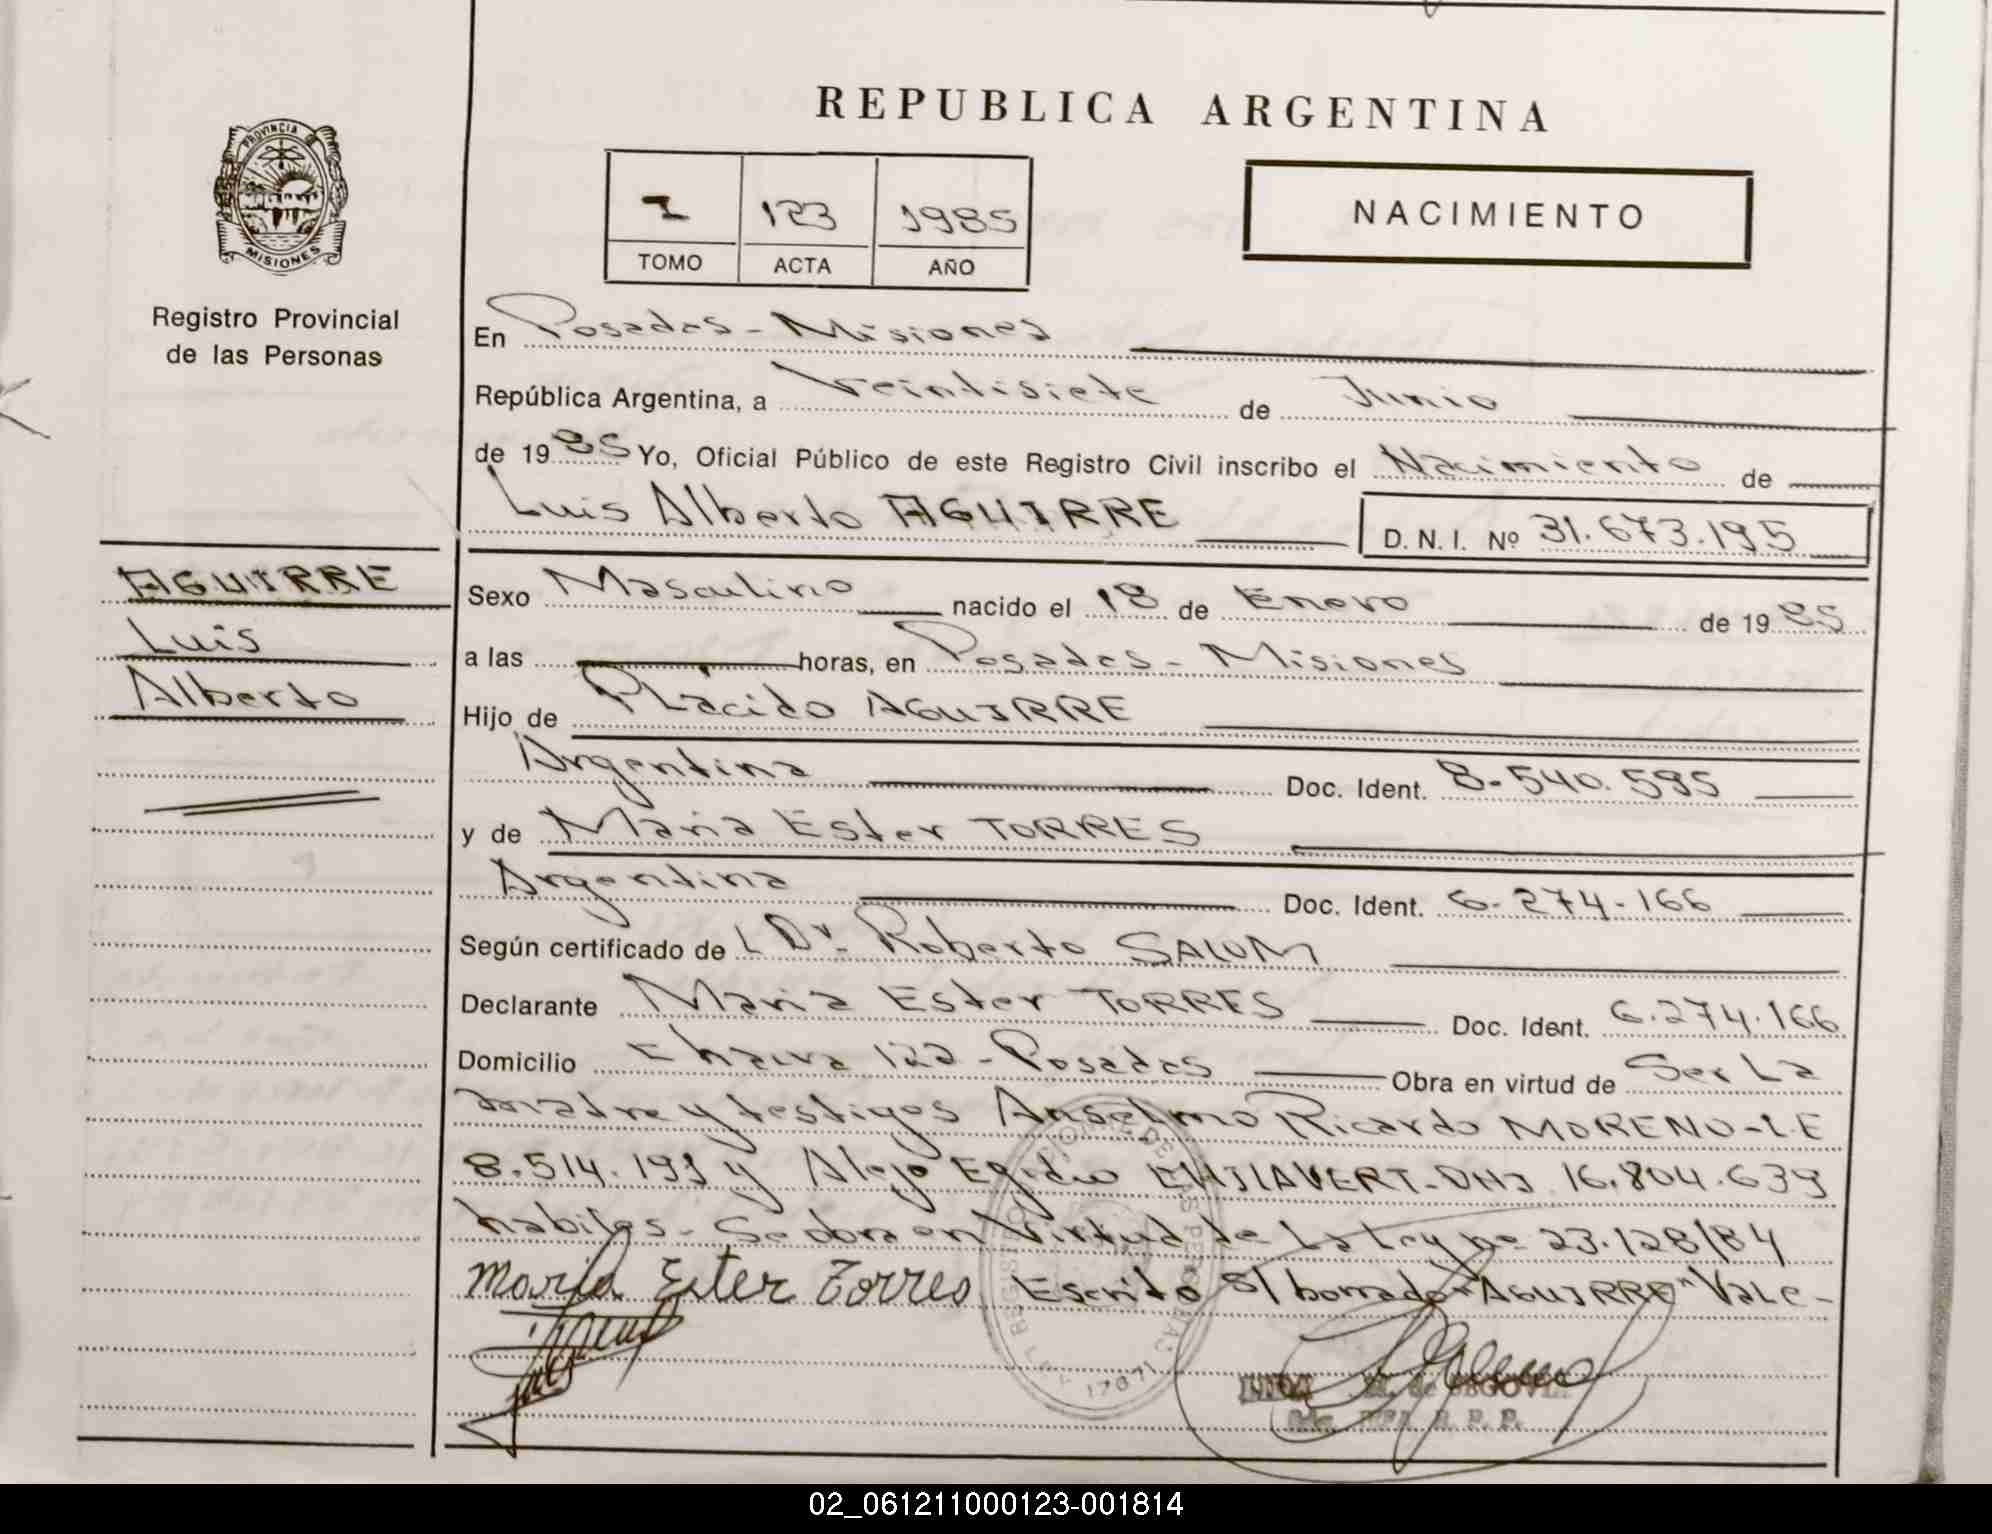 REPUBLICA ARGENTINA
PROVINCIA DE
MISIONES
Registro Provincial
de las Personas
I 123 1985
TOMO ACTA AÑO
NACIMIENTO
En Posadas - Misiones
República Argentina, a Veintisiete de Junio
de 1985 Yo, Oficial Público de este Registro Civil inscribo el Nacimiento de
Luis Alberto AGUIRRE D. N. I. Nº 31.673.195
AGUIRRE
Luis
Alberto
Sexo Masculino nacido el 18 de Enero de 1985
a las horas, en Posadas - Misiones
Hijo de Plácido AGUIRRE
Argentina Doc. Ident. 8.540.595
y de Maria Ester TORRES
Argentina Doc. Ident. 6.274.166
Según certificado de Dr. Roberto SALUM
Declarante Maria Ester TORRES Doc. Ident. 6.274.166
Domicilio 122 - Posadas Obra en virtud de Ser La
madre y testigos Anselmo Ricardo MORENO - L.E
8.514.191 y Alejo Egidio DNI 16.804.639
habiles - Se obra en Virtud de La Ley nº 23.128/84
Maria Ester Torres Escrito S/ borrado "AGUIRRE" Vale -
de SEGOVIA
02_061211000123-001814